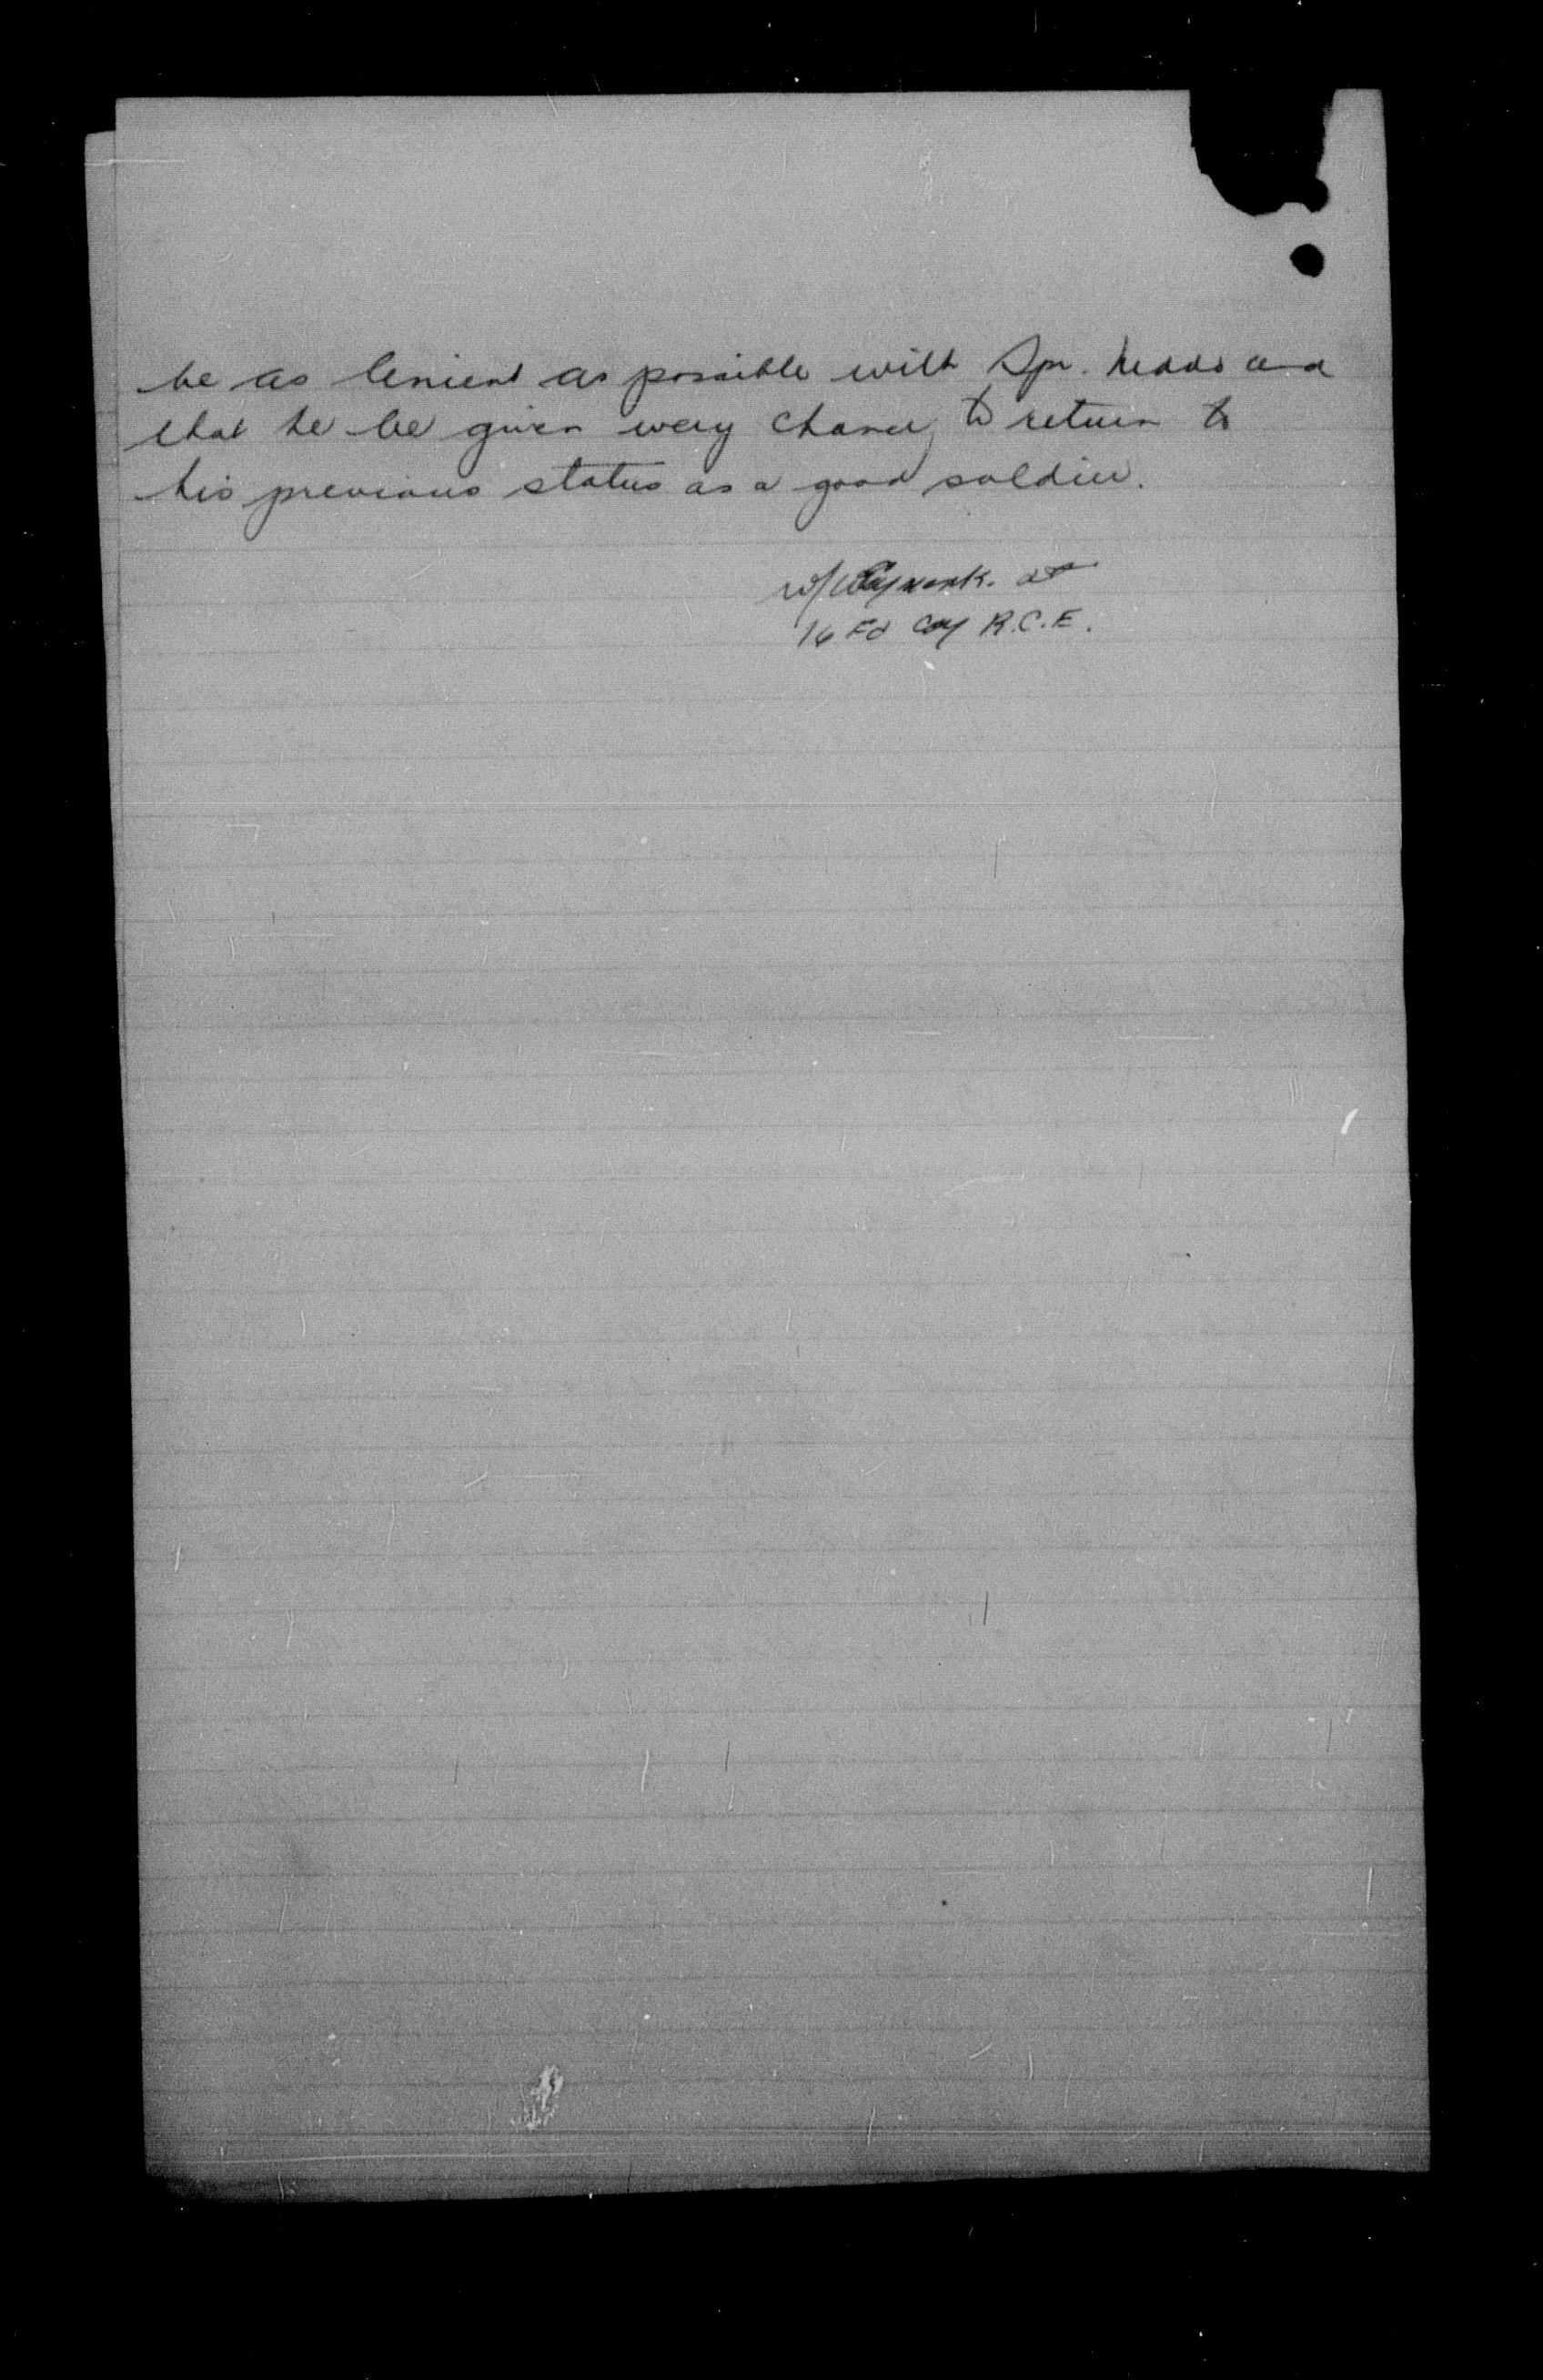 be as lenient as possible with Spr. Nedds and
that he be given every chance, to return to
his previous status as a good soldier.
16 Fd Coy R.C.E.